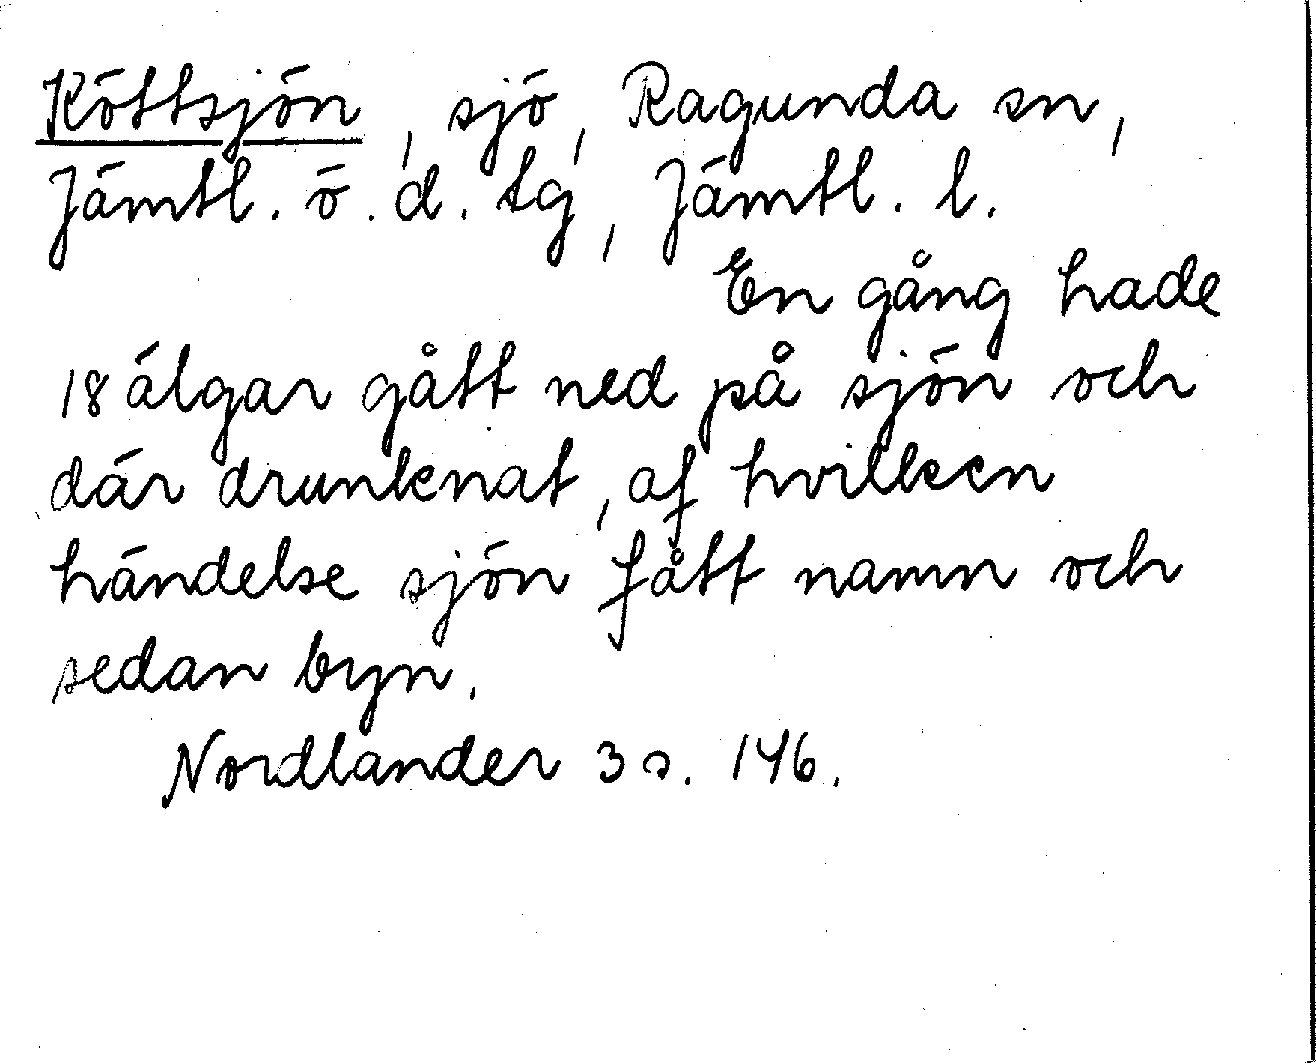 Köttsjön, sjö, Ragunda sn,
Jämtl. ö. d. tg, Jämtl. l.
En gång hade
18 älgar gått ned på sjön och
där drunknat, af hvilken
händelse sjön fått namn och
sedan byn.
Nordlander 3 s. 146.